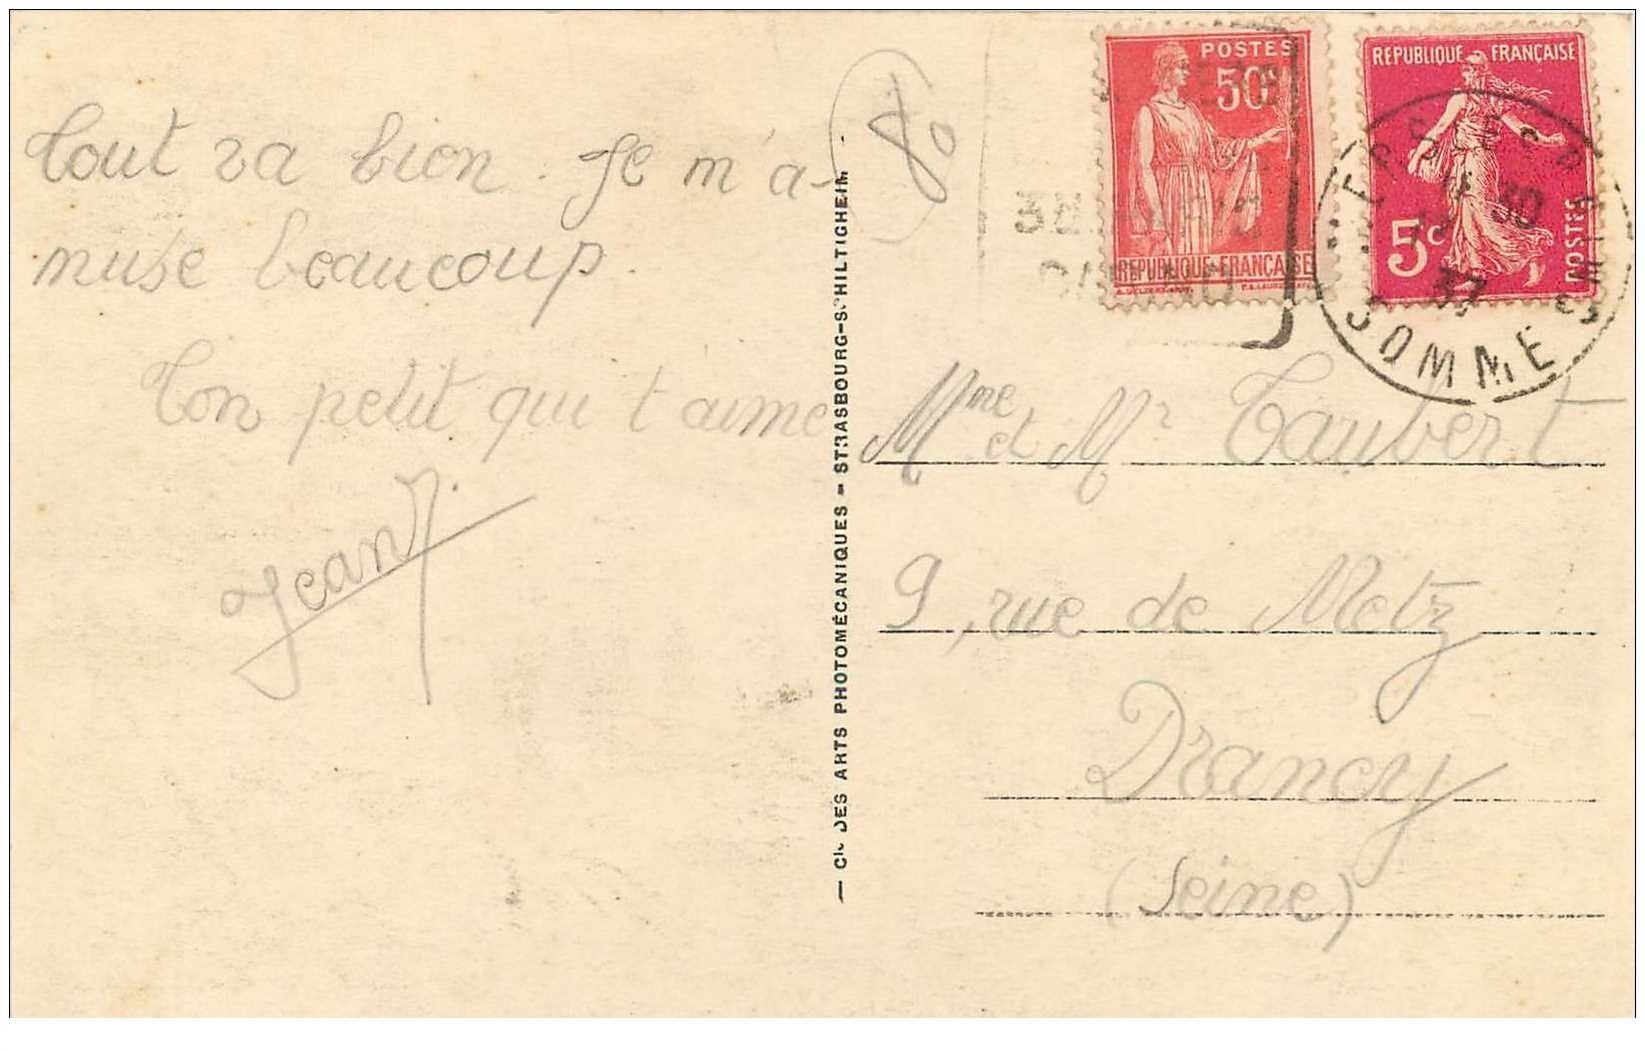 Tout va bien. Je m'a-
muse beaucoup.
Ton petit qui t'aime
Jean
80
POSTES
50c
REPUBLIQUE-FRANÇAISE
REPUBLIQUE FRANÇAISE
5c
POSTES
30
37
SOMME
CIE DES ARTS PHOTOMÉCANIQUES - STRASBOURG-SCHILTIGHEIM -
Mme et Mr Taubert
9, rue de Metz
Drancy
(Seine)